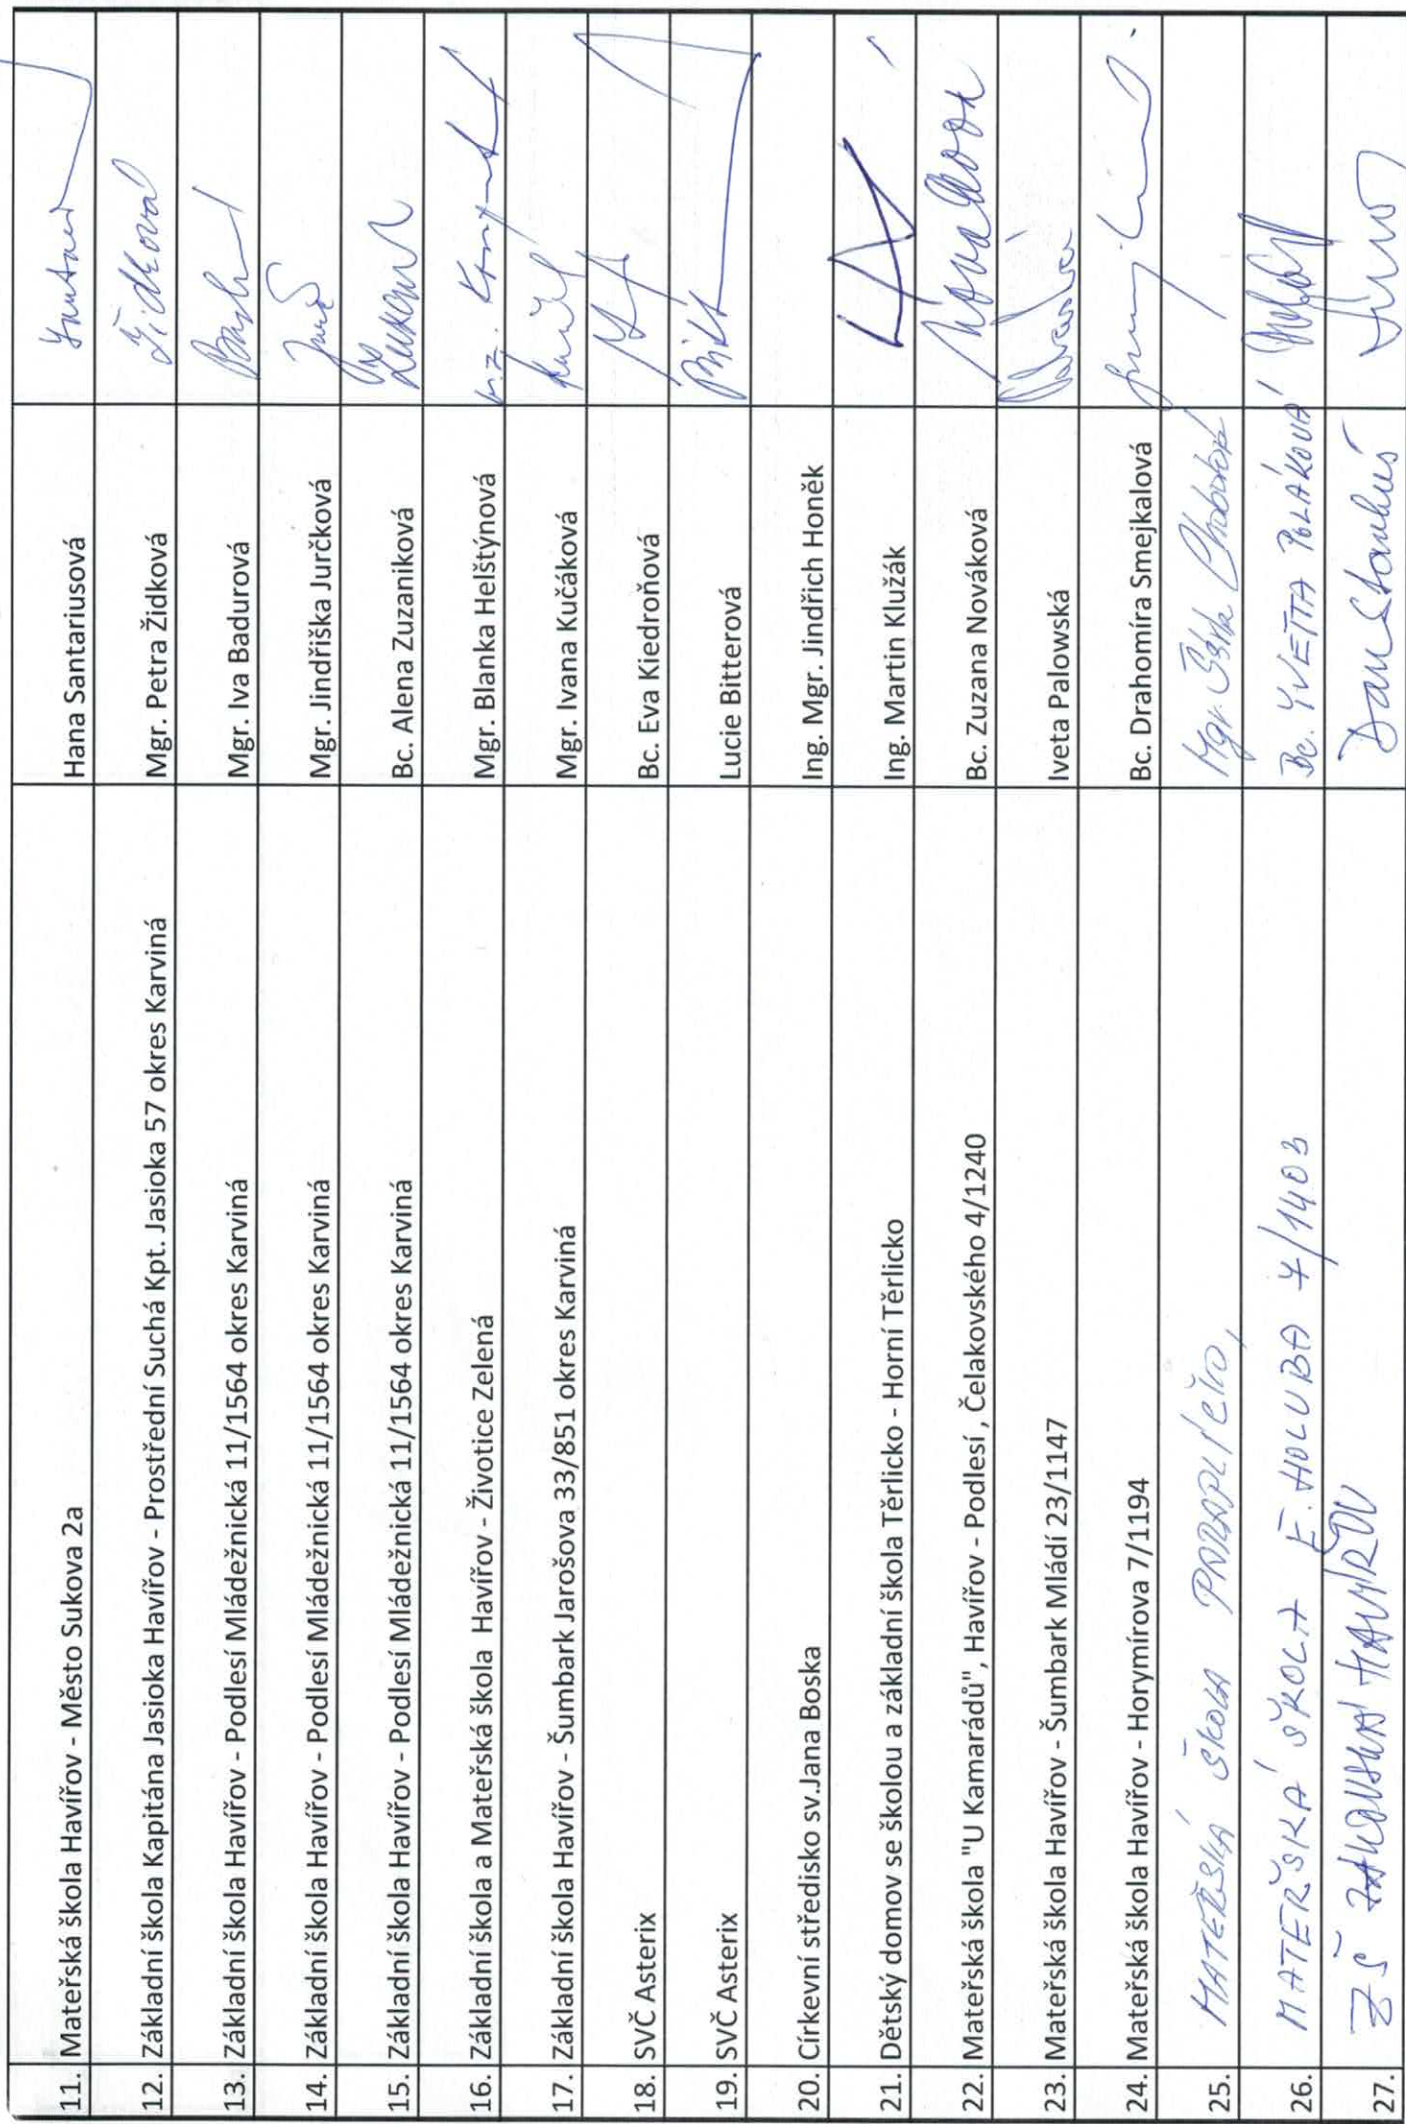 11. Mateřská škola Havířov - Město Sukova 2a Hana Santariusová
12. Základní škola Kapitána Jasioka Havířov - Prostřední Suchá Kpt. Jasioka 57 okres Karviná Mgr. Petra Židková Židková
13. Základní škola Havířov - Podlesí Mládežnická 11/1564 okres Karviná Mgr. Iva Badurová
14. Základní škola Havířov - Podlesí Mládežnická 11/1564 okres Karviná Mgr. Jindřiška Jurčková
15. Základní škola Havířov - Podlesí Mládežnická 11/1564 okres Karviná Bc. Alena Zuzaniková
16. Základní škola a Mateřská škola Havířov - Životice Zelená Mgr. Blanka Helštýnová
17. Základní škola Havířov - Šumbark Jarošova 33/851 okres Karviná Mgr. Ivana Kučáková
18. SVČ Asterix Bc. Eva Kiedroňová
19. SVČ Asterix Lucie Bitterová
20. Církevní středisko sv.Jana Boska Ing. Mgr. Jindřich Honěk
21. Dětský domov se školou a základní škola Těrlicko - Horní Těrlicko Ing. Martin Klužák
22. Mateřská škola "U Kamarádů", Havířov - Podlesí , Čelakovského 4/1240 Bc. Zuzana Nováková
23. Mateřská škola Havířov - Šumbark Mládí 23/1147 Iveta Palowská
24. Mateřská škola Havířov - Horymírova 7/1194 Bc. Drahomíra Smejkalová
25. MATEŘSKÁ ŠKOLA PARAPLÍČKO, Mgr.
26. MATEŘSKÁ ŠKOLA E. HOLUBA 7/1403 Bc. YVETTA POLÁKOVÁ
27. ZŠ